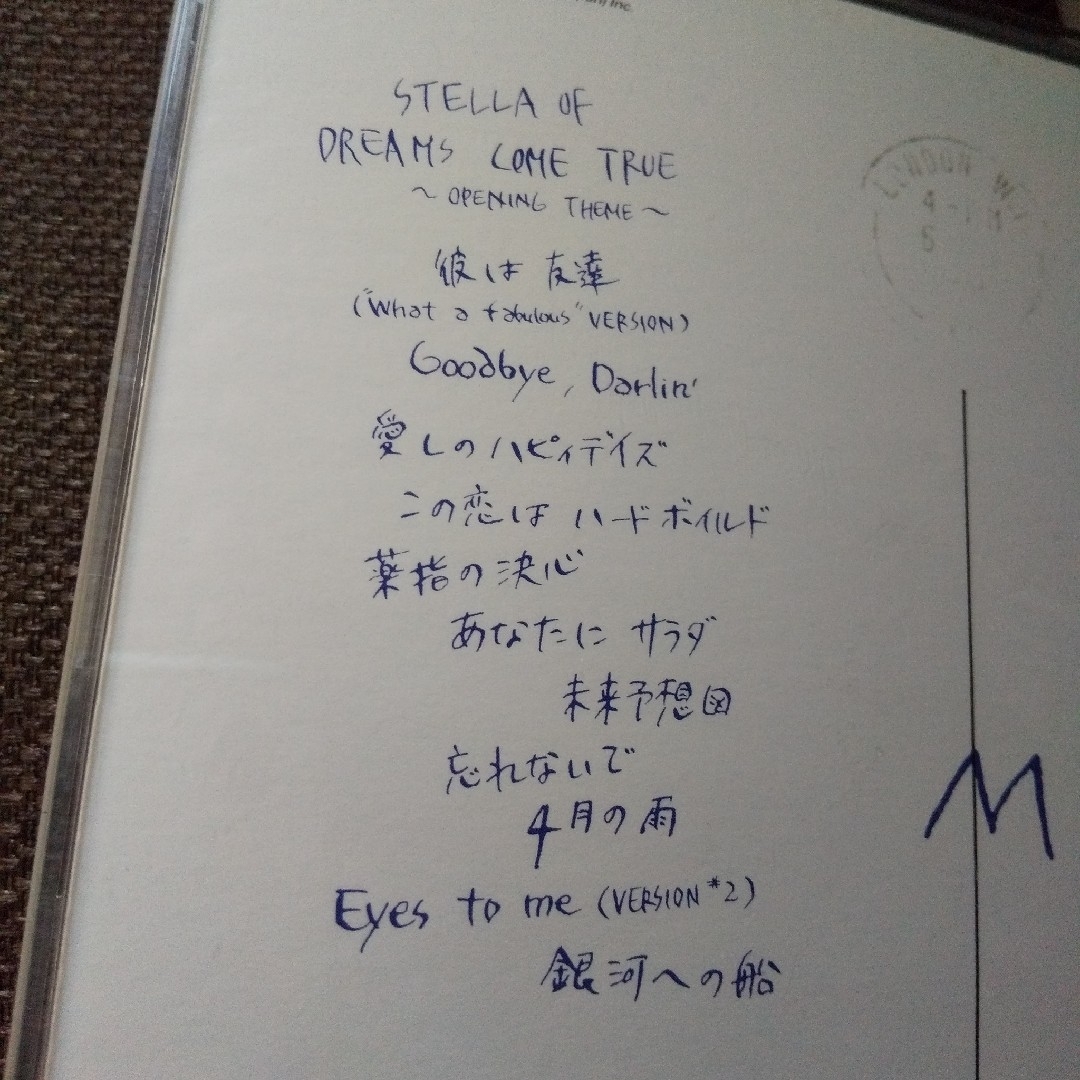 Inc.
STELLA OF
DREAMS COME TRUE
～OPENING THEME～
彼は友達
("What a fabulous" VERSION)
Goodbye, Darlin'
愛しのハピィデイズ
この恋はハードボイルド
薬指の決心
あなたにサラダ
未来予想図
忘れないで
4月の雨
Eyes to me (VERSION *2)
銀河への船
LONDON
4-
5
M